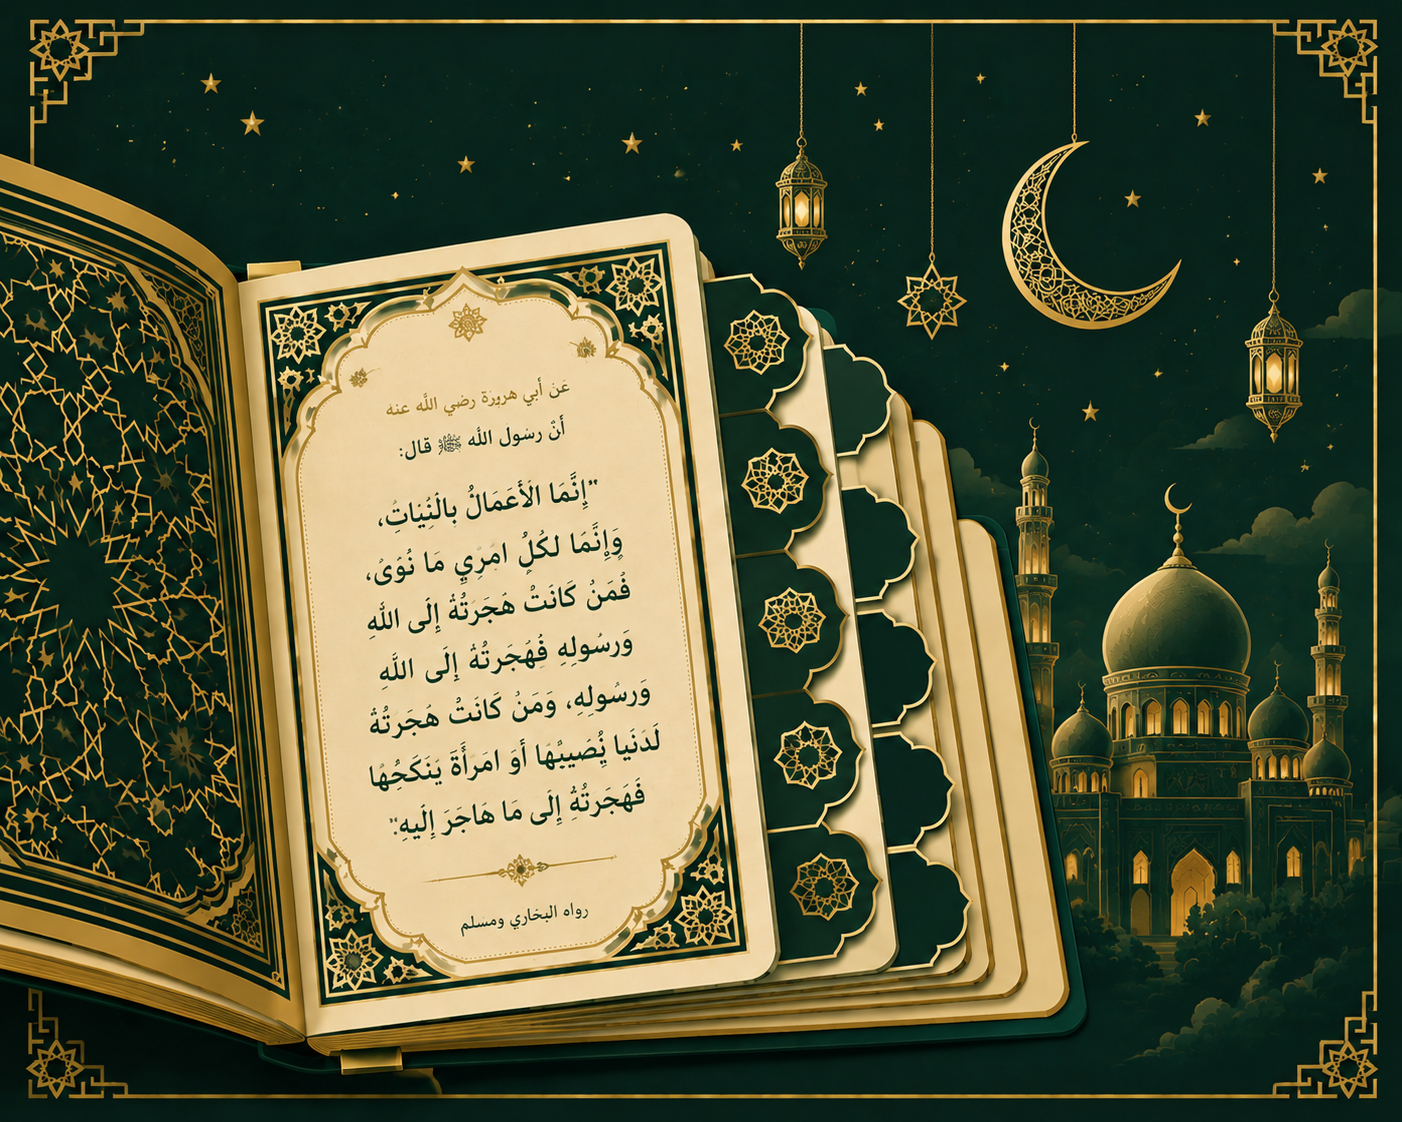 عن أبي هريرة رضي الله عنه
أن رسول الله ﷺ قال:
"إِنَّمَا الأَعمَالُ بِالنِّيَاتِ،
وَإِنَّمَا لكُلِ امرِيٍ مَا نُوَىُ،
فُمَنُ كَانَتُ هَجَرَتُهُ إِلَى اللهِ
وَرسُولِهِ فُهُجَرتُهُ إِلَى اللهِ
وَرسُولِهِ، وَمَنُ كَانَتُ هُجَرتُهُ
لَدَنَيا يُصَيبُهَا أَو امَرأَةَ يَنَكَحُهَا
فَهَجَرتُهُ إِلَى مَا هَاجَرَ إِلَيهِ".
رواه البخاري ومسلم